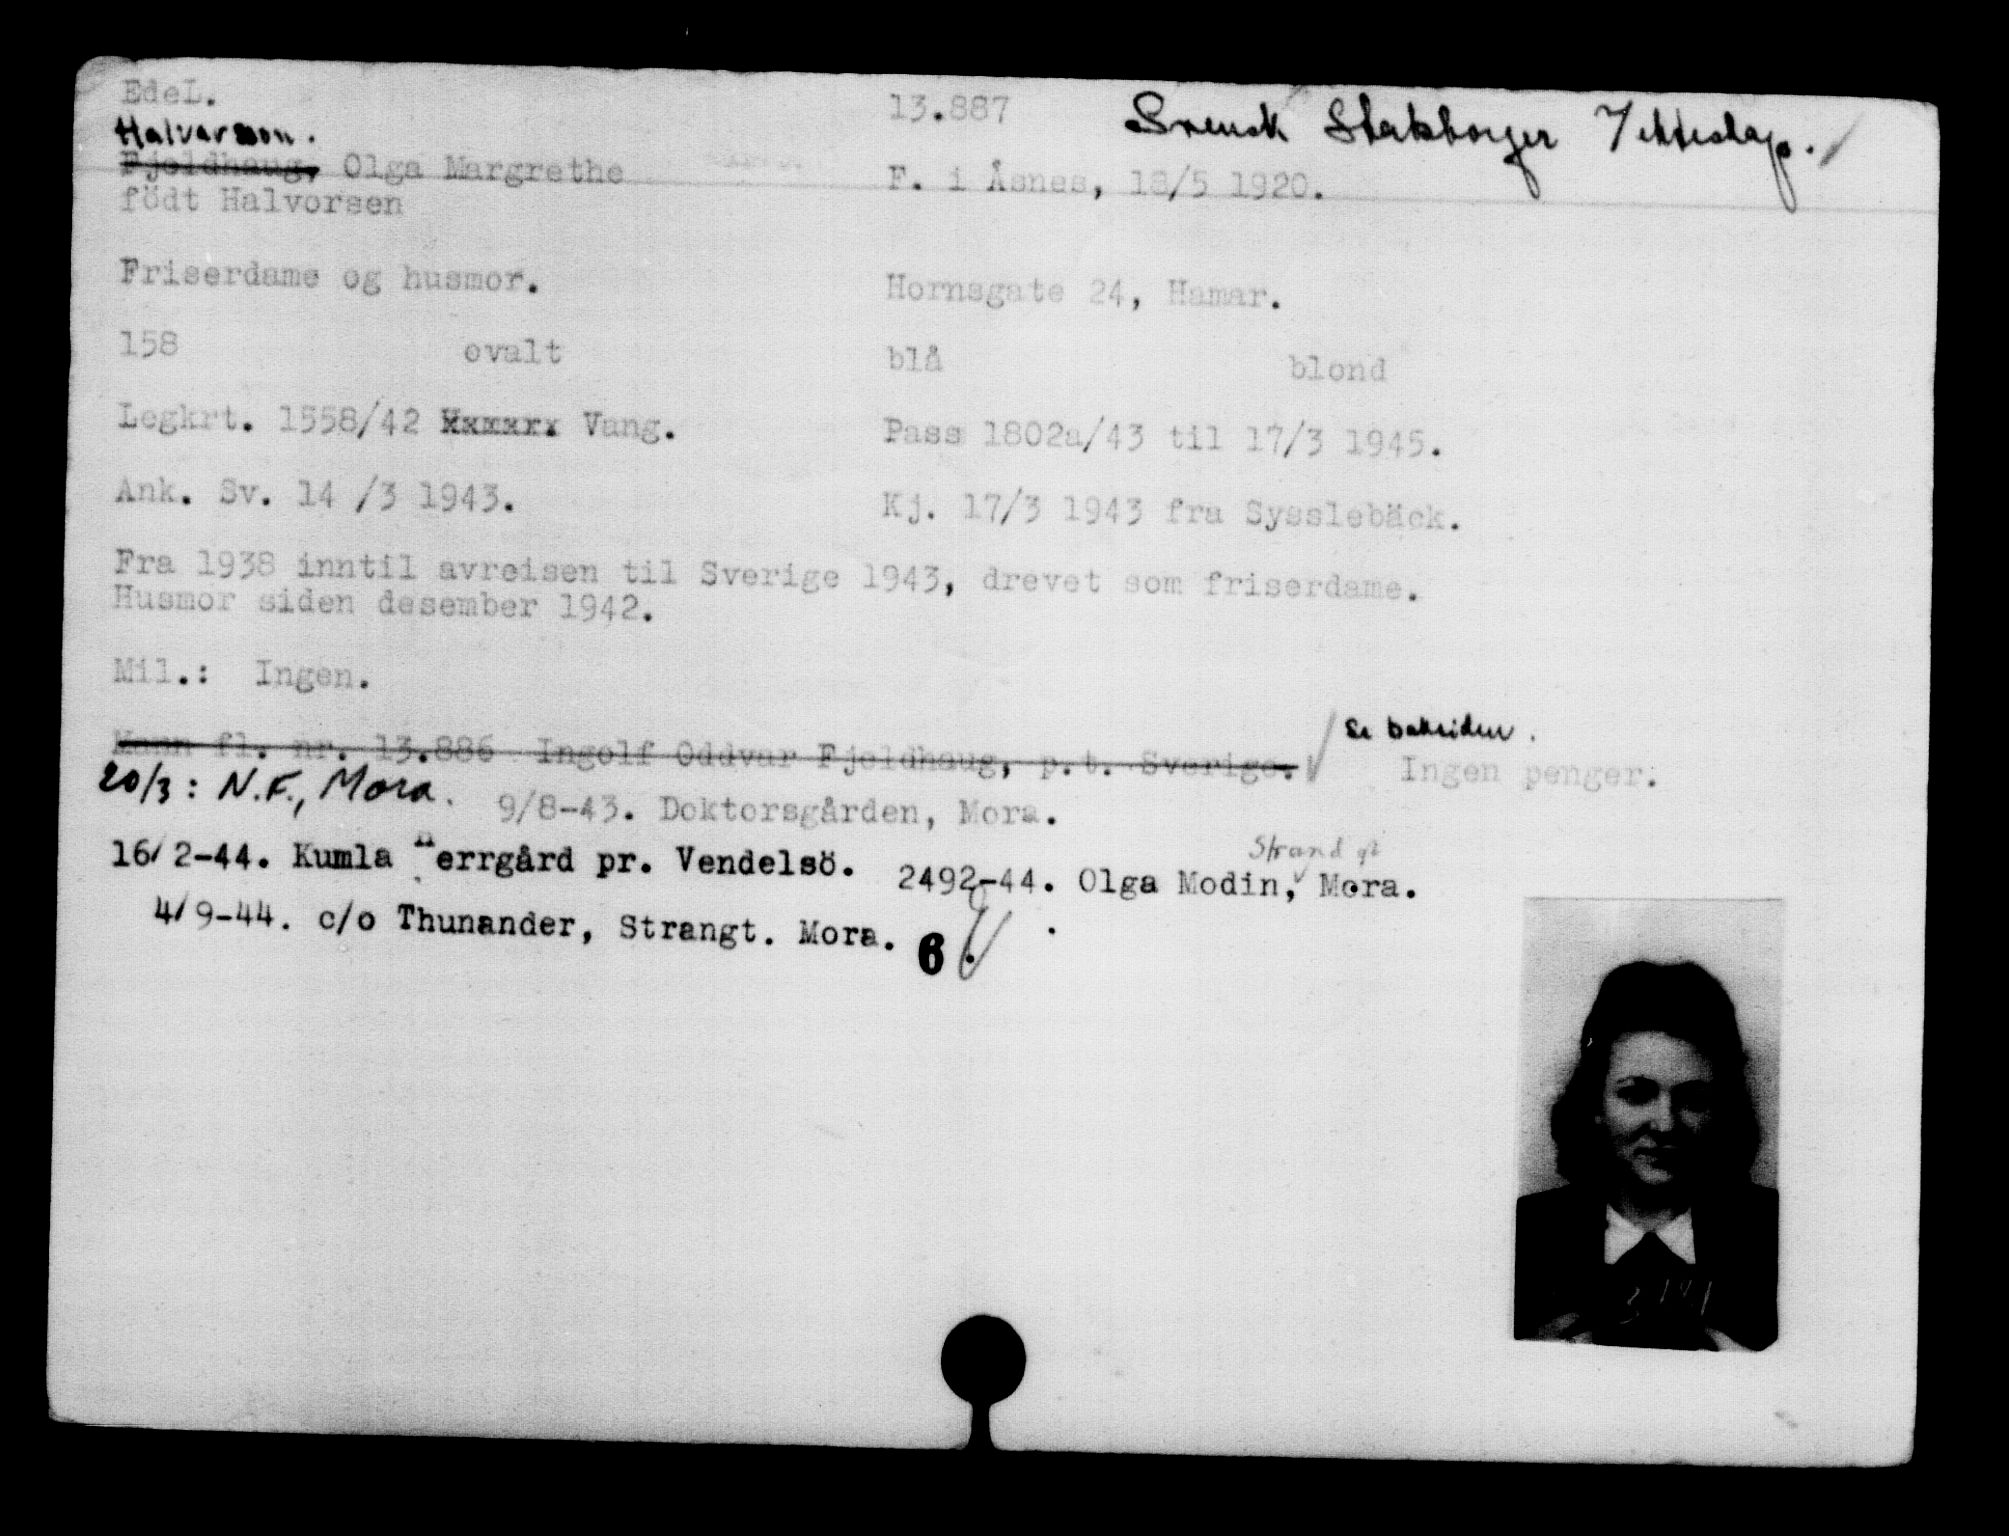 EdeL.
13.887 Svensk Statsborger
Halvorson.
Fjeldhaug, Olga Margrethe F. i Åsnes, 18/5 1920.
födt Halvorsen
Friserdame og husmor. Hornsgate 24, Hamar.
158 ovalt blå blond
Legkrt. 1558/42 Hxmxrx Vang. Pass 1802a/43 til 17/3 1945.
Ank. Sv. 14 /3 1943. Kj. 17/3 1943 fra Sysslebäck.
Fra 1938 inntil avreisen til Sverige 1943, drevet som friserdame.
Husmor siden desember 1942.
Mil.: Ingen.
Se baksiden.
Mann fl. nr. 13.886 Ingolf Oddvar Fjeldhaug, p.t. Sverige. Ingen penger.
20/3: N.F., Mora. 9/8-43. Doktorsgården, Mora.
Strand gt
16/2-44. Kumla Herrgård pr. Vendelsö. 2492-44. Olga Modin, Mora.
4/9-44. c/o Thunander, Strangt. Mora. 6.